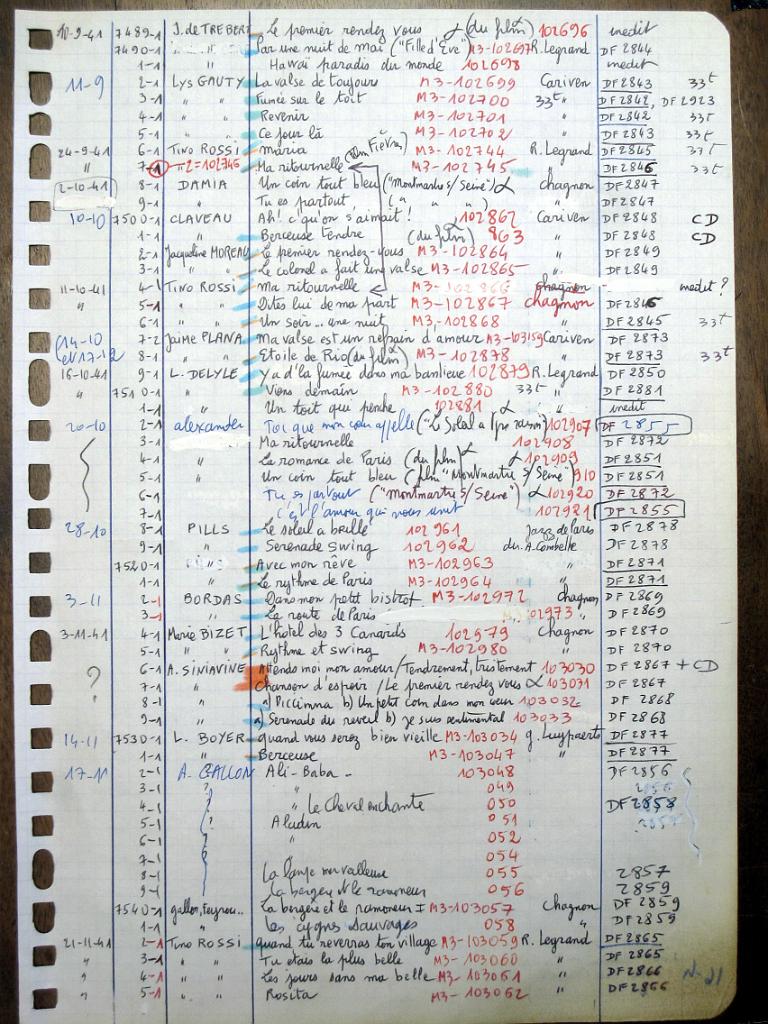 10-9-41 7489-1 J. de TREBERT Le premier rendez vous (du film) 102696 inedit
7490-1 " " Par une nuit de mai ("Fille d'Eve") M3-102697 R. Legrand DF 2844
1-1 " " Hawaï paradis du monde 102698 inedit
11-9 2-1 Lys GAUTY La valse de toujours M3-102699 Cariven DF 2843 33t
3-1 " " Fumée sur le toit M3-102700 33t " DF 2842, DF 2923
4-1 " " Revenir M3-102701 " DF 2842 33t
5-1 " " Ce jour là M3-102702 " DF 2843 33t
24-9-41 6-1 Tino ROSSI Maria M3-102744 R. Legrand DF 2845 33t
" 7-1 " 2=102746 Ma ritournelle (film Fièvres) M3-102745 " DF 2846 33t
2-10-41 8-1 DAMIA Un coin tout bleu ("Montmartre s/ Seine") chagnon DF 2847
9-1 " Tu es partout (" " ") " DF 2847
10-10 7500-1 CLAVEAU Ah! c'qu'on s'aimait! 102862 Cariven DF 2848 CD
1-1 " Berceuse tendre (du film) 863 " DF 2848 CD
2-1 Jacqueline MOREAU Le premier rendez-vous M3-102864 " DF 2849
3-1 " " Le Colonel a fait une valse M3-102865 " DF 2849
11-10-41 4-1 Tino ROSSI ma ritournelle M3-102866 chagnon - inedit?
" 5-1 " " Dites lui de ma part M3-102867 chagnon DF 2846
6-1 " " Un soir... une nuit M3-102868 " DF 2845 33t
(14-10 7-2 Jaime PLANA Ma valse est un refrain d'amour M3-103159 Cariven DF 2873
et 17-12 8-1 " " Etoile de Rio (du film) M3-102878 " DF 2873 33t
16-10-41 9-1 L. DELYLE Y a d'la fumée dans ma banlieue 102879 R. Legrand DF 2850
" 7510-1 " Viens demain M3-102880 33t " DF 2881
1-1 " Un toit qui penche 102881 " inedit
20-10 2-1 alexander Toi que mon cœur appelle ("Le Soleil a tjrs raison") 102907 DF 2855
3-1 Ma ritournelle 102908 DF 2872
4-1 " La romance de Paris (du film) 102909 DF 2851
5-1 " Un coin tout bleu (film "Montmartre s/ Seine") 910 DF 2851
6-1 " Tu es partout ("Montmartre s/ Seine") 102920 DF 2872
7-1 " c'est l'amour qui nous unit 102921 DF 2855
28-10 8-1 PILLS Le soleil a brillé 102961 Jazz de Paris DF 2878
9-1 " Serenade swing 102962 du. A. Combelle DF 2878
7520-1 PILLS Avec mon rêve M3-102963 " DF 2871
1-1 " Le rythme de Paris M3-102964 " DF 2871
3-11 2-1 BORDAS Dans mon petit bistrot M3-102972 chagnon DF 2869
3-1 " La route de Paris M3-102973 " DF 2869
3-11-41 4-1 Marie BIZET L'hôtel des 3 Canards 102979 Chagnon DF 2870
5-1 " Rythme et swing M3-102980 " DF 2870
? 6-1 A. SINIAVINE Attends moi mon amour / Tendrement, tristement 103030 DF 2867 + CD
7-1 " Chanson d'espoir / Le premier rendez vous 103031 DF 2867
8-1 " a) Piccinina b) Un petit coin dans mon cœur 103032 DF 2868
9-1 " a) Serenade du reveil b) je suis sentimental 103033 DF 2868
14-11 7530-1 L. BOYER Quand vous serez bien vieille M3-103034 G. Luypaerts DF 2877
1-1 " Berceuse M3-103047 " DF 2877
17-11 2-1 A. GALLON Ali-Baba - 103048 DF 2856
3-1 ? " 049 2856
4-1 " Le Cheval enchanté 050 DF 2858
5-1 ? Aladin 051
6-1 052
7-1 054
8-1 La lampe merveilleuse 055 2857
9-1 La bergère et le ramoneur 056 2859
7540-1 gallon, Feyrou.. La bergère et le ramoneur I M3-103057 Chagnon DF 2859
1-1 " Les cygnes sauvages 058 " DF 2859
21-11-41 2-1 Tino ROSSI Quand tu reverras ton village M3-103059 R. Legrand DF 2865
" 3-1 " " Tu étais la plus belle M3-103060 " DF 2865
" 4-1 " " Les jours sans ma belle M3-103061 " DF 2866
" 5-1 " " Rosita M3-103062 " DF 2866